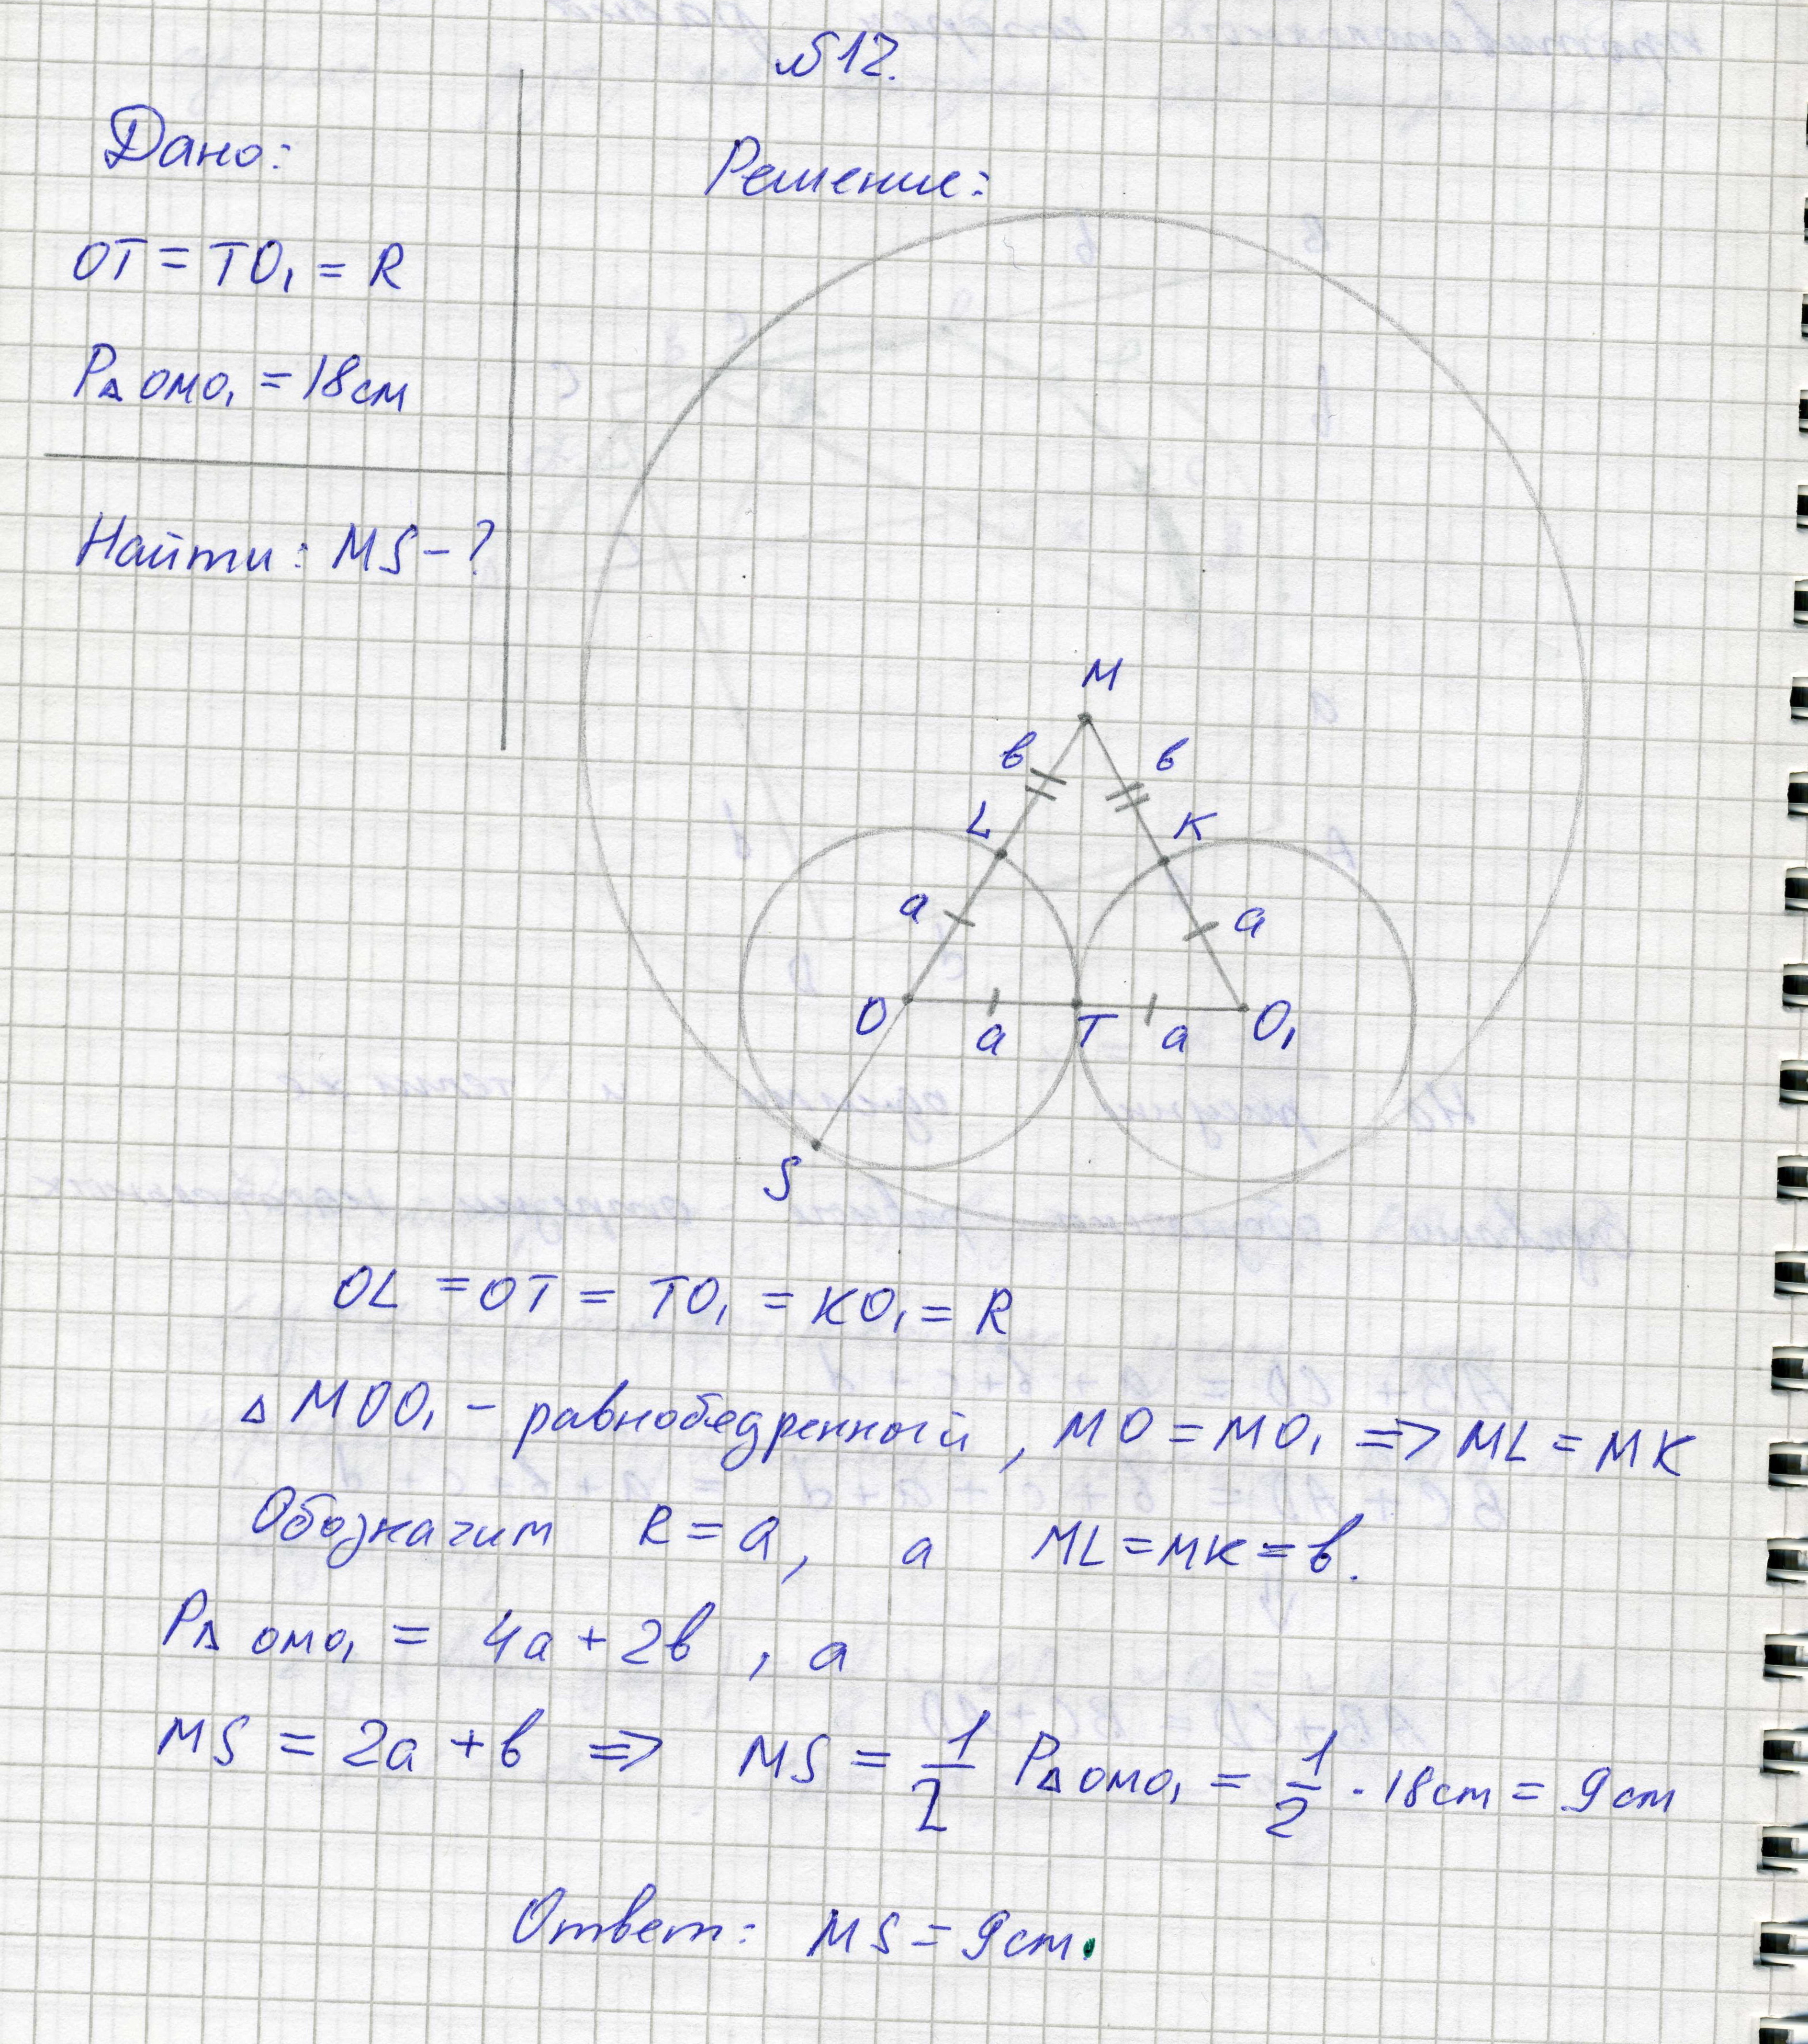 №12.
Дано:
OT = TO₁ = R
P△OMO₁ = 18см
Найти: MS - ?
Решение:
M
в
в
L
K
a
a
O
a
T
a
O₁
S
OL = OT = TO₁ = KO₁ = R
△MOO₁ - равнобедренный, MO = MO₁ => ML = MK
Обозначим R = a, а ML = MK = в.
P△OMO₁ = 4a + 2в, а
MS = 2a + в => MS = 1/2 P△OMO₁ = 1/2 · 18см = 9см
Ответ: MS = 9см.